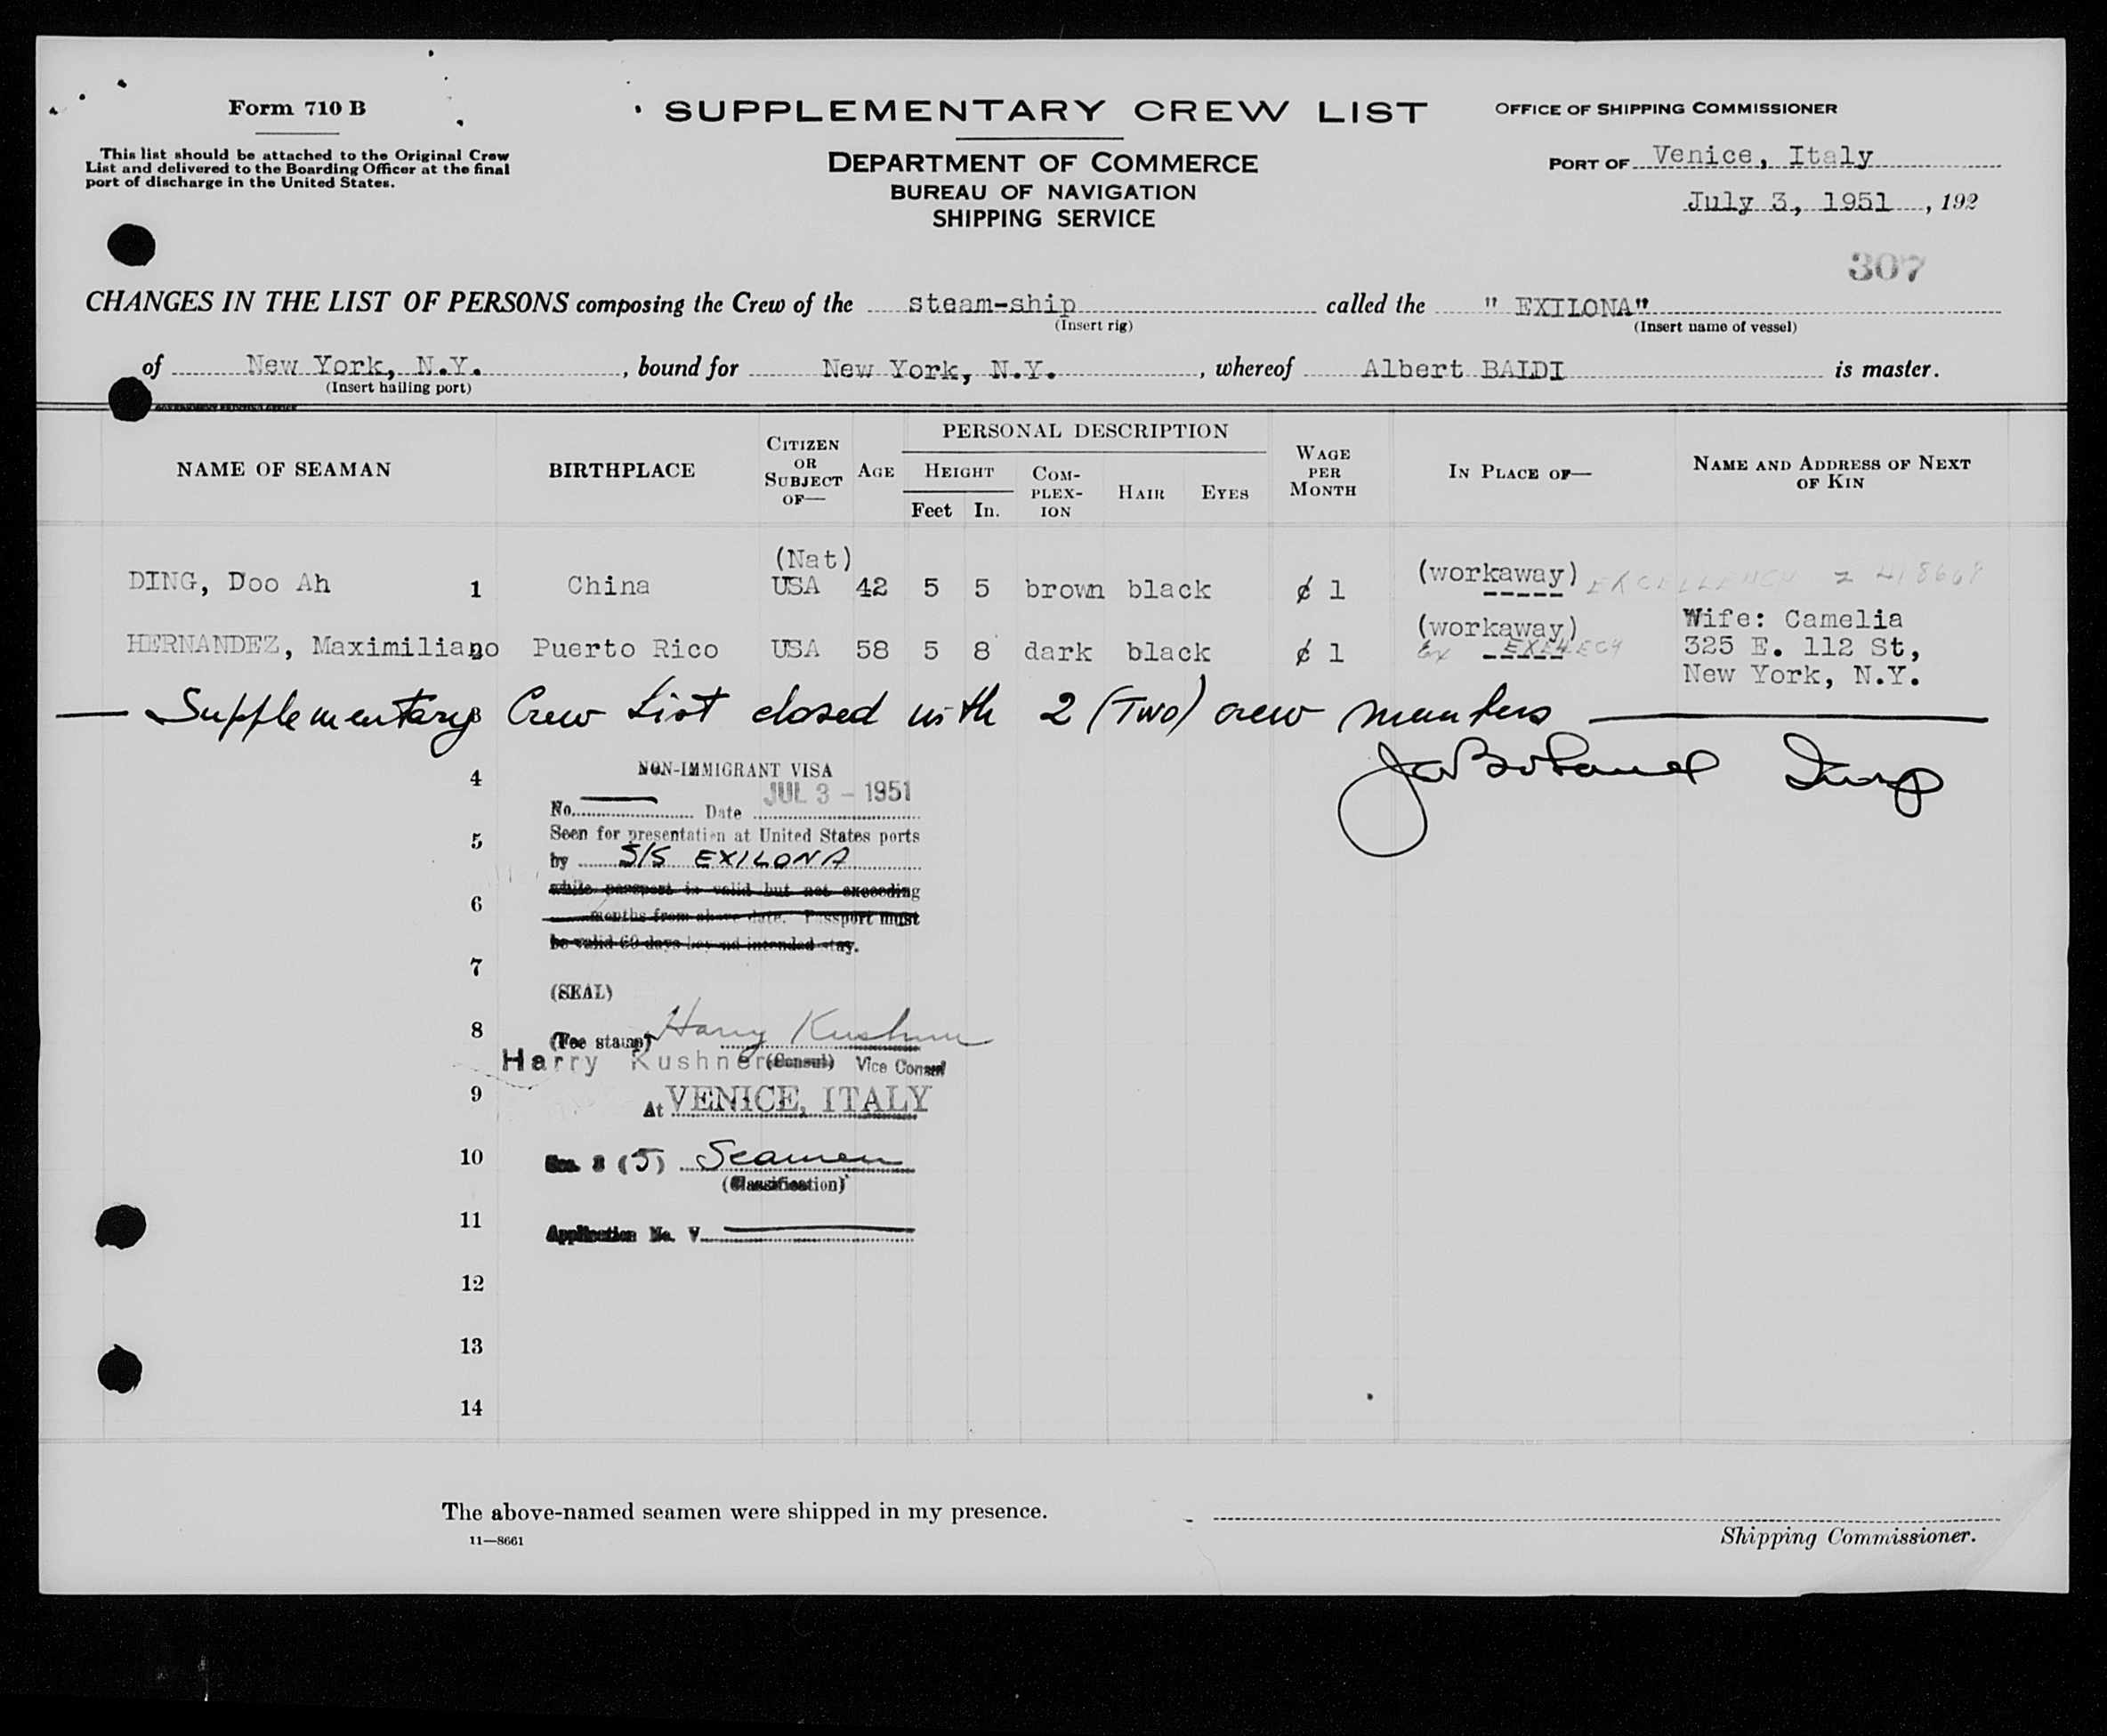 Form 710 B
This list should be attached to the Original Crew
List and delivered to the Boarding Officer at the final
port of discharge in the United States.
SUPPLEMENTARY CREW LIST
DEPARTMENT OF COMMERCE
BUREAU OF NAVIGATION
SHIPPING SERVICE
OFFICE OF SHIPPING COMMISSIONER
PORT OF Venice, Italy
July 3, 1951, 192
307
CHANGES IN THE LIST OF PERSONS composing the Crew of the steam-ship called the " EXILONA"
(Insert rig) (Insert name of vessel)
of New York, N.Y., bound for New York, N.Y., whereof Albert BAIDI is master.
(Insert hailing port)
GOVERNMENT PRINTING OFFICE
NAME OF SEAMAN BIRTHPLACE CITIZEN OR SUBJECT OF— AGE PERSONAL DESCRIPTION HEIGHT Feet In. COM-PLEX-ION HAIR EYES WAGE PER MONTH IN PLACE OF— NAME AND ADDRESS OF NEXT OF KIN
(Nat)
DING, Doo Ah 1 China USA 42 5 5 brown black ¢ 1 (workaway)
HERNANDEZ, Maximiliano Puerto Rico USA 58 5 8 dark black ¢ 1 (workaway) Wife: Camelia
325 E. 112 St,
New York, N.Y.
— Supplementary 3 Crew List closed with 2 (Two) crew members —
4
NON-IMMIGRANT VISA
No. Date JUL 3 - 1951
5
Seen for presentation at United States ports
by S/S EXILONA
while passport is valid but not exceeding
6
months from above date. Passport must
be valid 60 days beyond intended stay.
7
(SEAL)
8
(Fee stamp) Harry Kushner
Harry Kushner (Consul) Vice Consul
9
At VENICE, ITALY
10
Sec. 3 (5) Seamen
(Classification)
11
Application No. V
12
13
14
The above-named seamen were shipped in my presence.
11—8661
Shipping Commissioner.